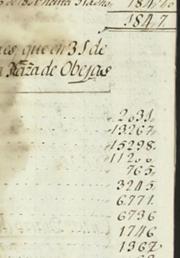 1847
es, que en 31 de
Raza de Obejas
2631
13267
15298
112
765
3245
6771
6736
1746
1362